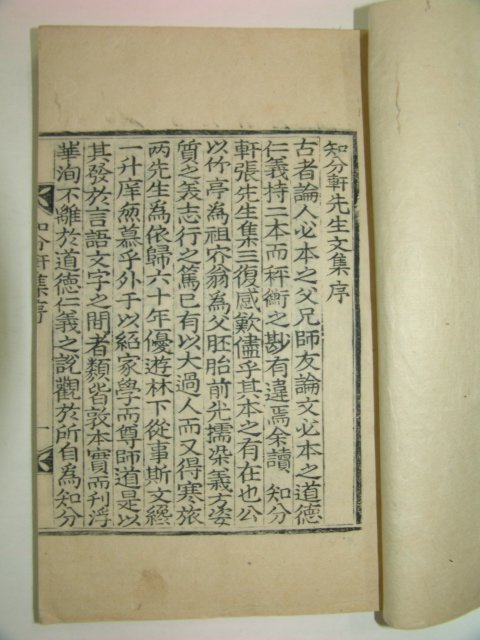 知分軒先生文集序
古者論人必本之父兄師友論文必本之道德
仁義持二本而秤衡之尠有違焉余讀 知分
軒張先生集三復感歎儘乎其本之有在也公
以竹亭為祖 翁為父胚胎前光擩染義方姿
質之 志行之篤已有以大過人而又得寒旅
两先生為依歸六十年優遊林下從事斯文纔
一升庠 慕乎外于以紹家學而尊師道是以
其發於言語文字之間者類皆敦本實而刋浮
華洵不離於道德仁義之說觀於所自為知分
知分軒集序 一